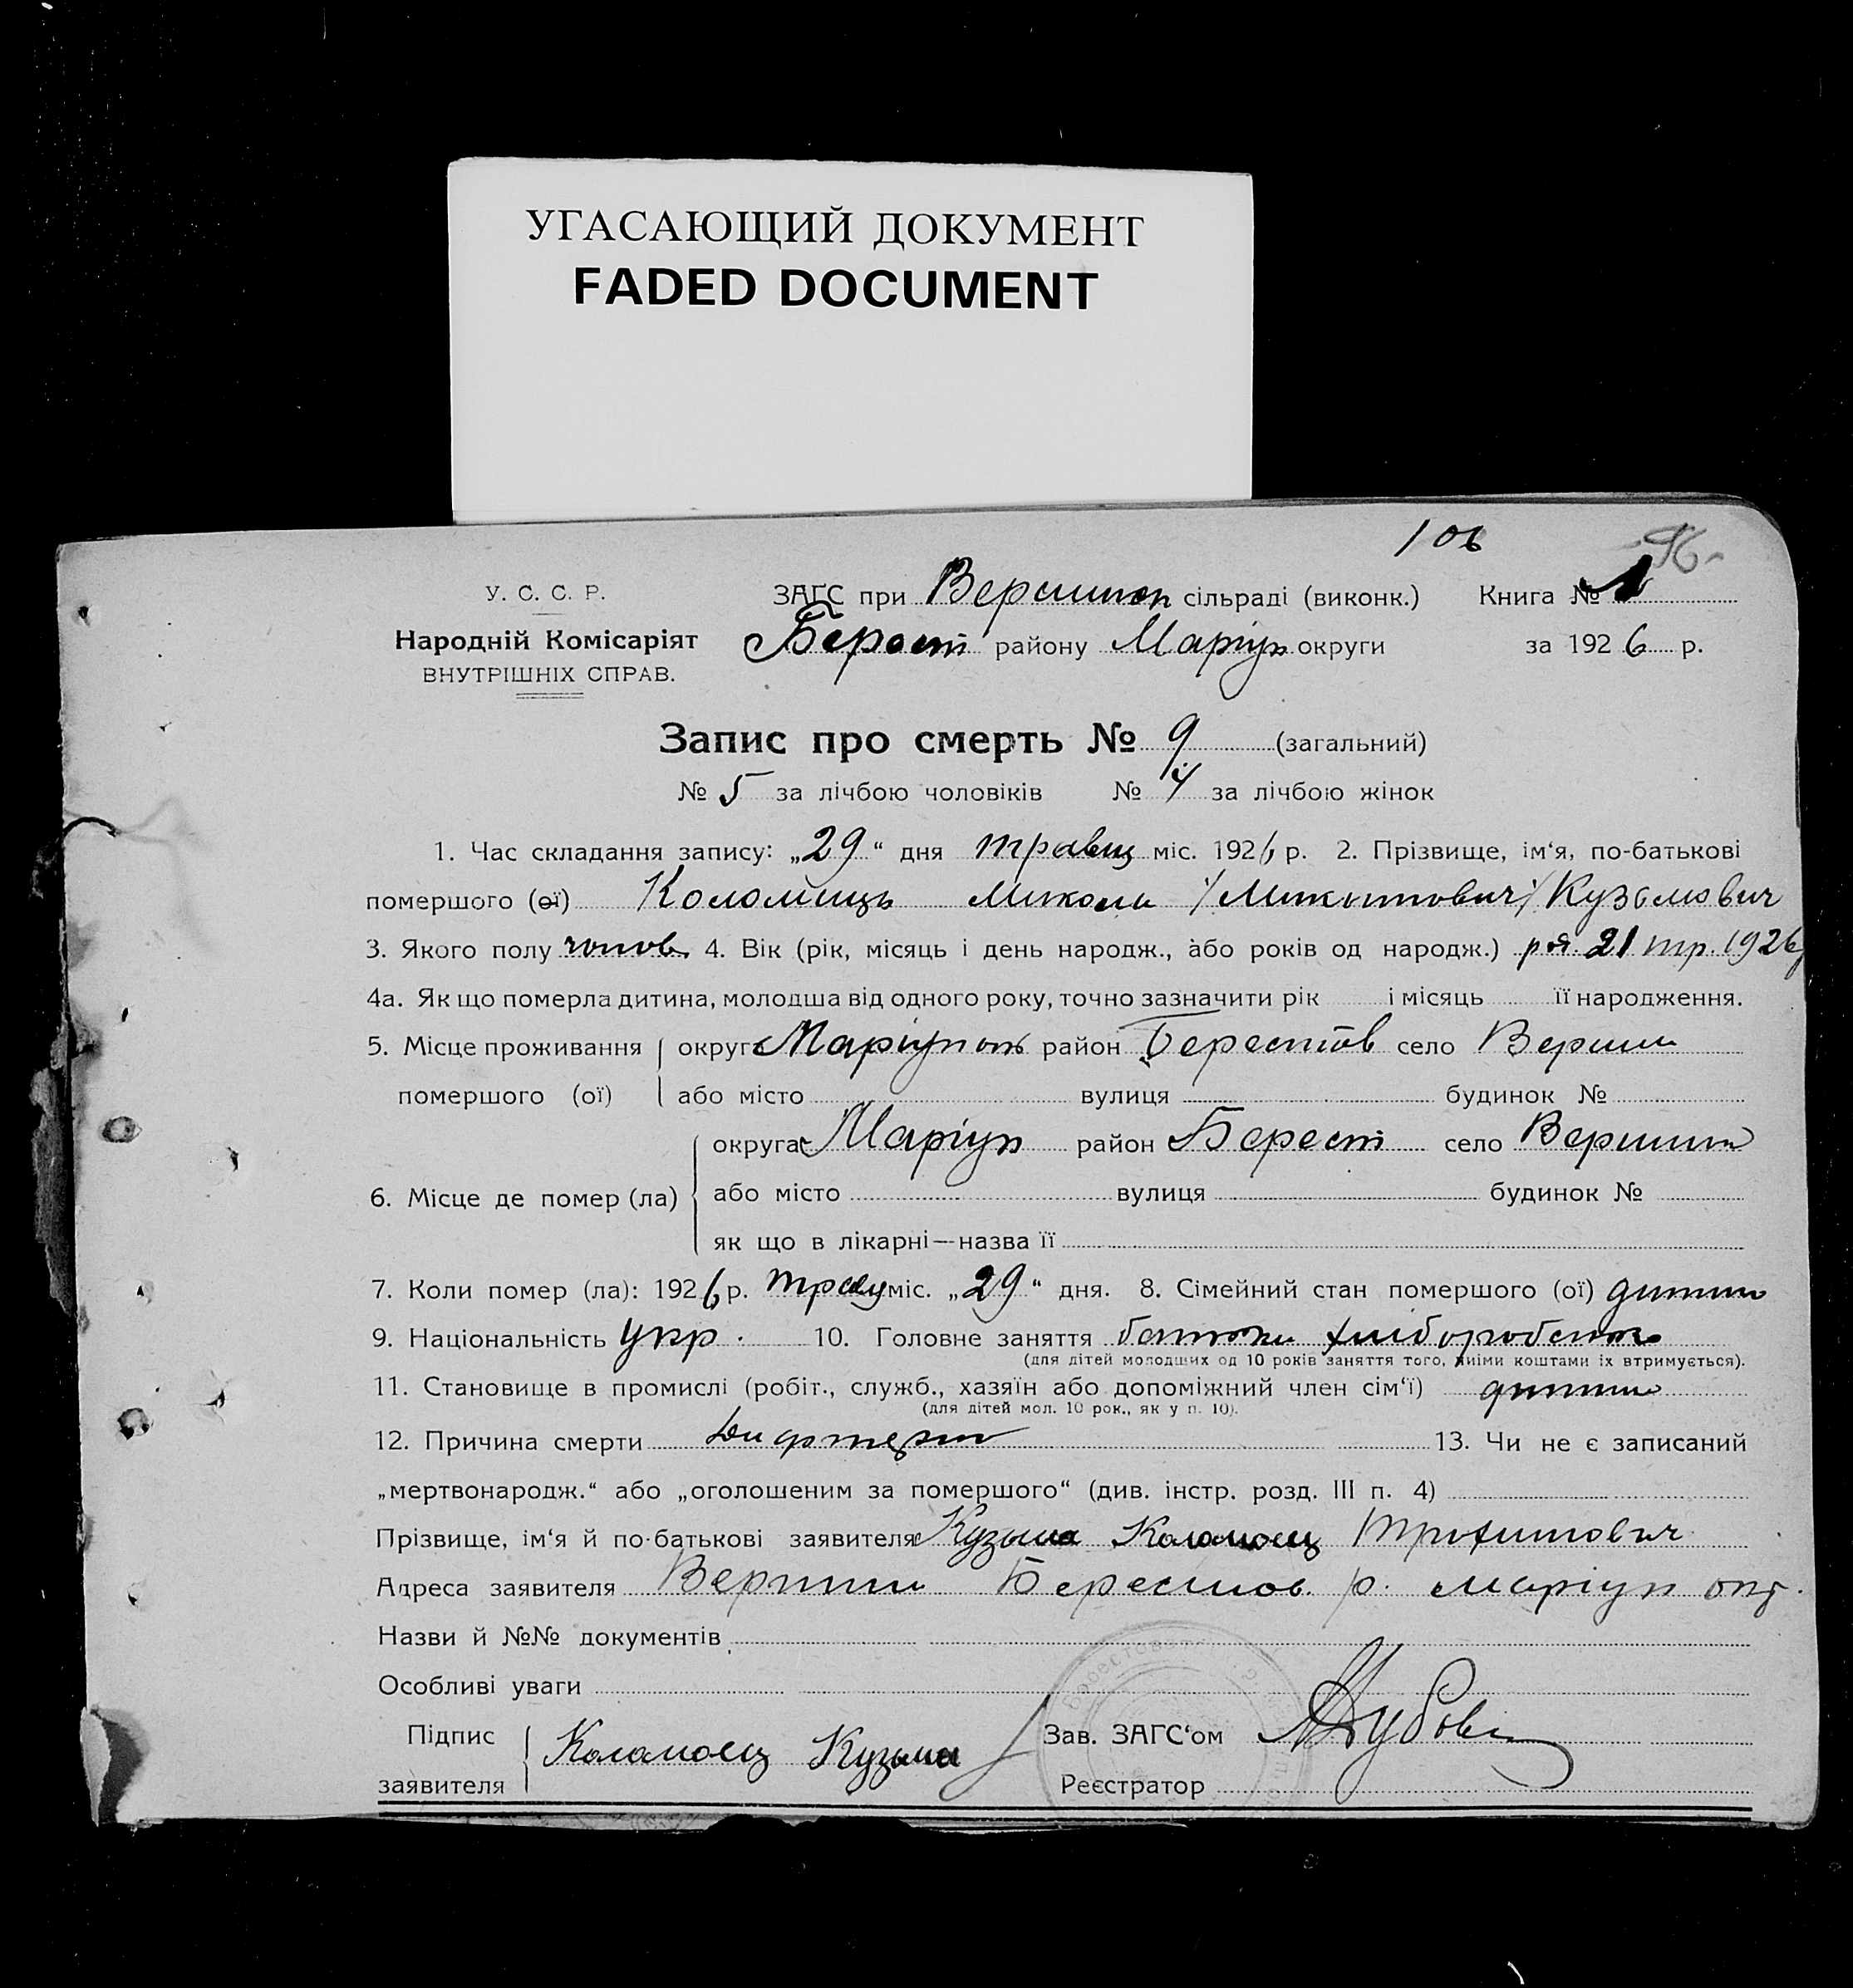 УГАСАЮЩИЙ ДОКУМЕНТ
FADED DOCUMENT
106
96
У. С. С. Р. ЗАГС при Вершинон сільраді (виконк.) Книга № 1
Народній Комісаріят Берест району Маріуп округи за 1926 р.
ВНУТРІШНІХ СПРАВ.
Запис про смерть № 9 (загальний)
№ 5 за лічбою чоловіків № 4 за лічбою жінок
1. Час складання запису: „29“ дня травць міс. 1926 р. 2. Прізвище, ім‘я, по-батькові
помершого (ої) Коломиць Микола /Микитович/ Кузьмович
3. Якого полу чолов. 4. Вік (рік, місяць і день народж., або років од народж.) род. 21 тр. 1926
4а. Як що померла дитина, молодша від одного року, точно зазначити рік і місяць її народження.
5. Місце проживання округа Маріуполь район Берестов село Верши
помершого (ої) або місто вулиця будинок №
округа Маріуп район Берест село Вершин
6. Місце де помер (ла) або місто вулиця будинок №
як що в лікарні—назва її
7. Коли помер (ла): 1926 р. трав міс. „29“ дня. 8. Сімейний стан помершого (ої) дитина
9. Національність Укр. 10. Головне заняття батьки хліборобство
(для дітей молодших од 10 років заняття того, чиїми коштами їх втримується).
11. Становище в промислі (робіт., служб., хазяїн або допоміжний член сім‘ї) дитина
(для дітей мол. 10 рок., як у п. 10).
12. Причина смерти Дифтерит 13. Чи не є записаний
„мертвонародж.“ або „оголошеним за помершого“ (див. інстр. розд. III п. 4)
Прізвище, ім‘я й по-батькові заявителя Кузьма Коламоец Трохимович
Адреса заявителя Вершин Берестов. р. Маріуп окр.
Назви й №№ документів
Особливі уваги
Підпис Коламоец Кузьма Зав. ЗАГС‘ом Дубов
заявителя Реєстратор